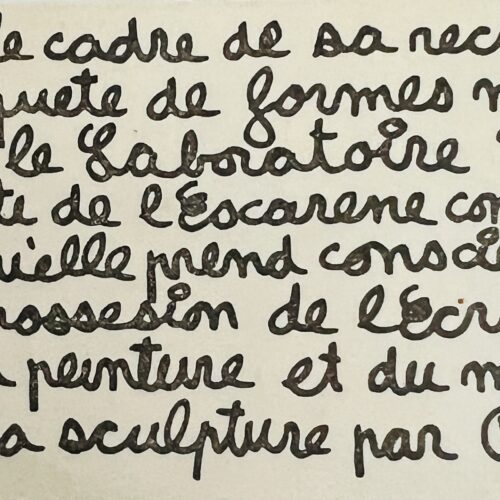 le cadre de sa rec
quete de formes n
le Laboratoire
te de l'Escarene con
rielle prend consci
possesion de l'Ecr
peinture et du m
a sculpture par